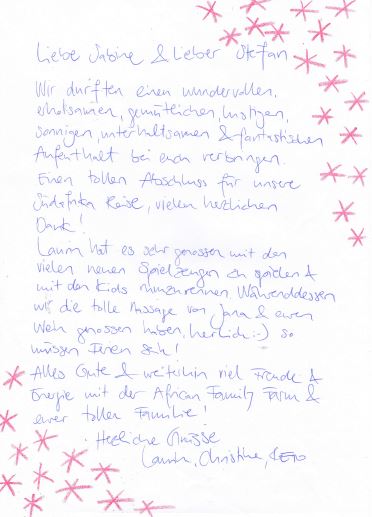 Liebe Sabine & Lieber Stefan
Wir durften einen wundervollen,
erholsamen, gemütlichen, lustigen,
sonnigen, unterhaltsamen & fantastischen
Aufenthalt bei euch verbringen.
Einen tollen Abschluss für unsere
Südafrika Reise, vielen herzlichen
Dank!
hat es sehr genossen mit den
vielen neuen Spielzeugen zu spielen &
mit den Kids rumzurennen. Währenddessen
wir die tolle Massage von Jana & euren
Wein genossen haben, herrlich :-) so
müssen Ferien sein!
Alles Gute & weiterhin viel Freude &
Energie mit der African Family Farm &
eurer tollen Familie!
Herzliche Grüsse
Christine,